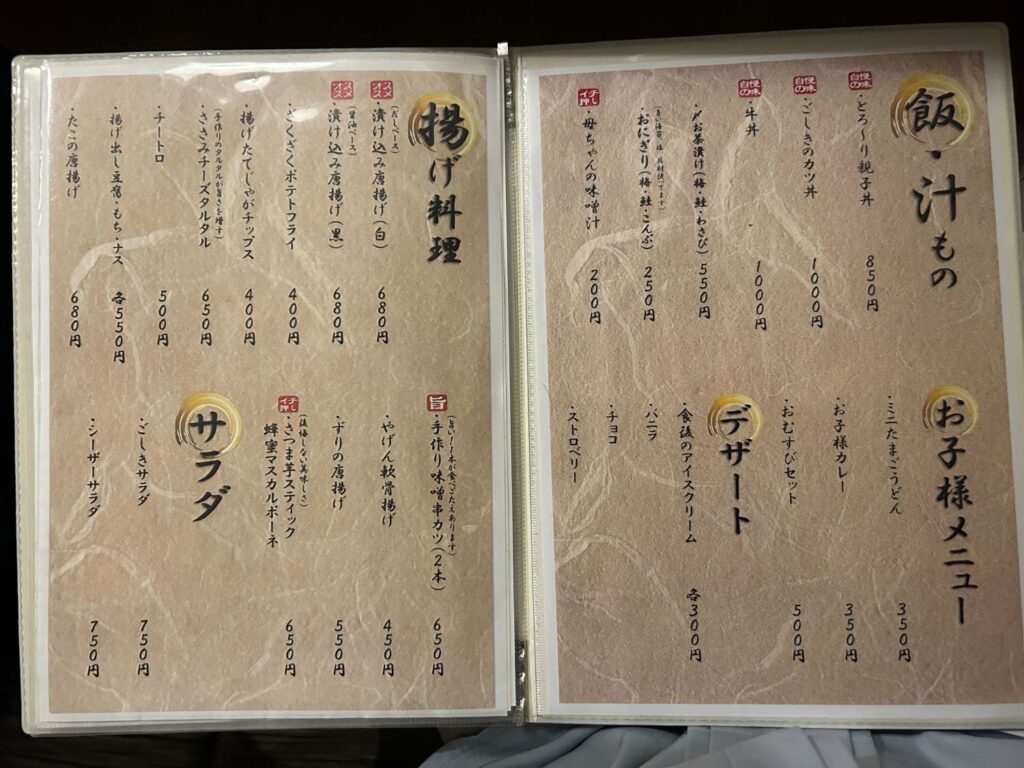 飯・汁もの
自慢の味
・とろ〜り親子丼 850円
自慢の味
・ごしきのカツ丼 1000円
自慢の味
・牛丼 1000円
・〆お茶漬け(梅・鮭・わさび) 550円
おにぎり(梅・鮭・こんぶ) 250円
イチ押し
・母ちゃんの味噌汁 200円
お子様メニュー
・ミニたまごうどん 350円
・お子様カレー 350円
・おむすびセット 500円
デザート
・食後のアイスクリーム 各300円
・バニラ
・チョコ
・ストロベリー
揚げ料理
オススメ
(だしベース)
・漬け込み唐揚げ(白) 680円
オススメ
(醤油ベース)
・漬け込み唐揚げ(黒) 680円
・ざくざくポテトフライ 400円
・揚げたてじゃがチップス 400円
(手作りのタルタルが旨さを増す)
・ささみチーズタルタル 650円
・チートロ 500円
・揚げ出し豆腐・もち・ナス 各550円
・たこの唐揚げ 680円
旨
(旨い!1本が食べごたえあります)
・手作り味噌串カツ(2本) 650円
・やげん軟骨揚げ 450円
・ずりの唐揚げ 550円
イチ押し
(後悔しない美味しさ)
・さつま芋スティック
蜂蜜マスカルポーネ 650円
サラダ
・ごしきサラダ 750円
・シーザーサラダ 750円